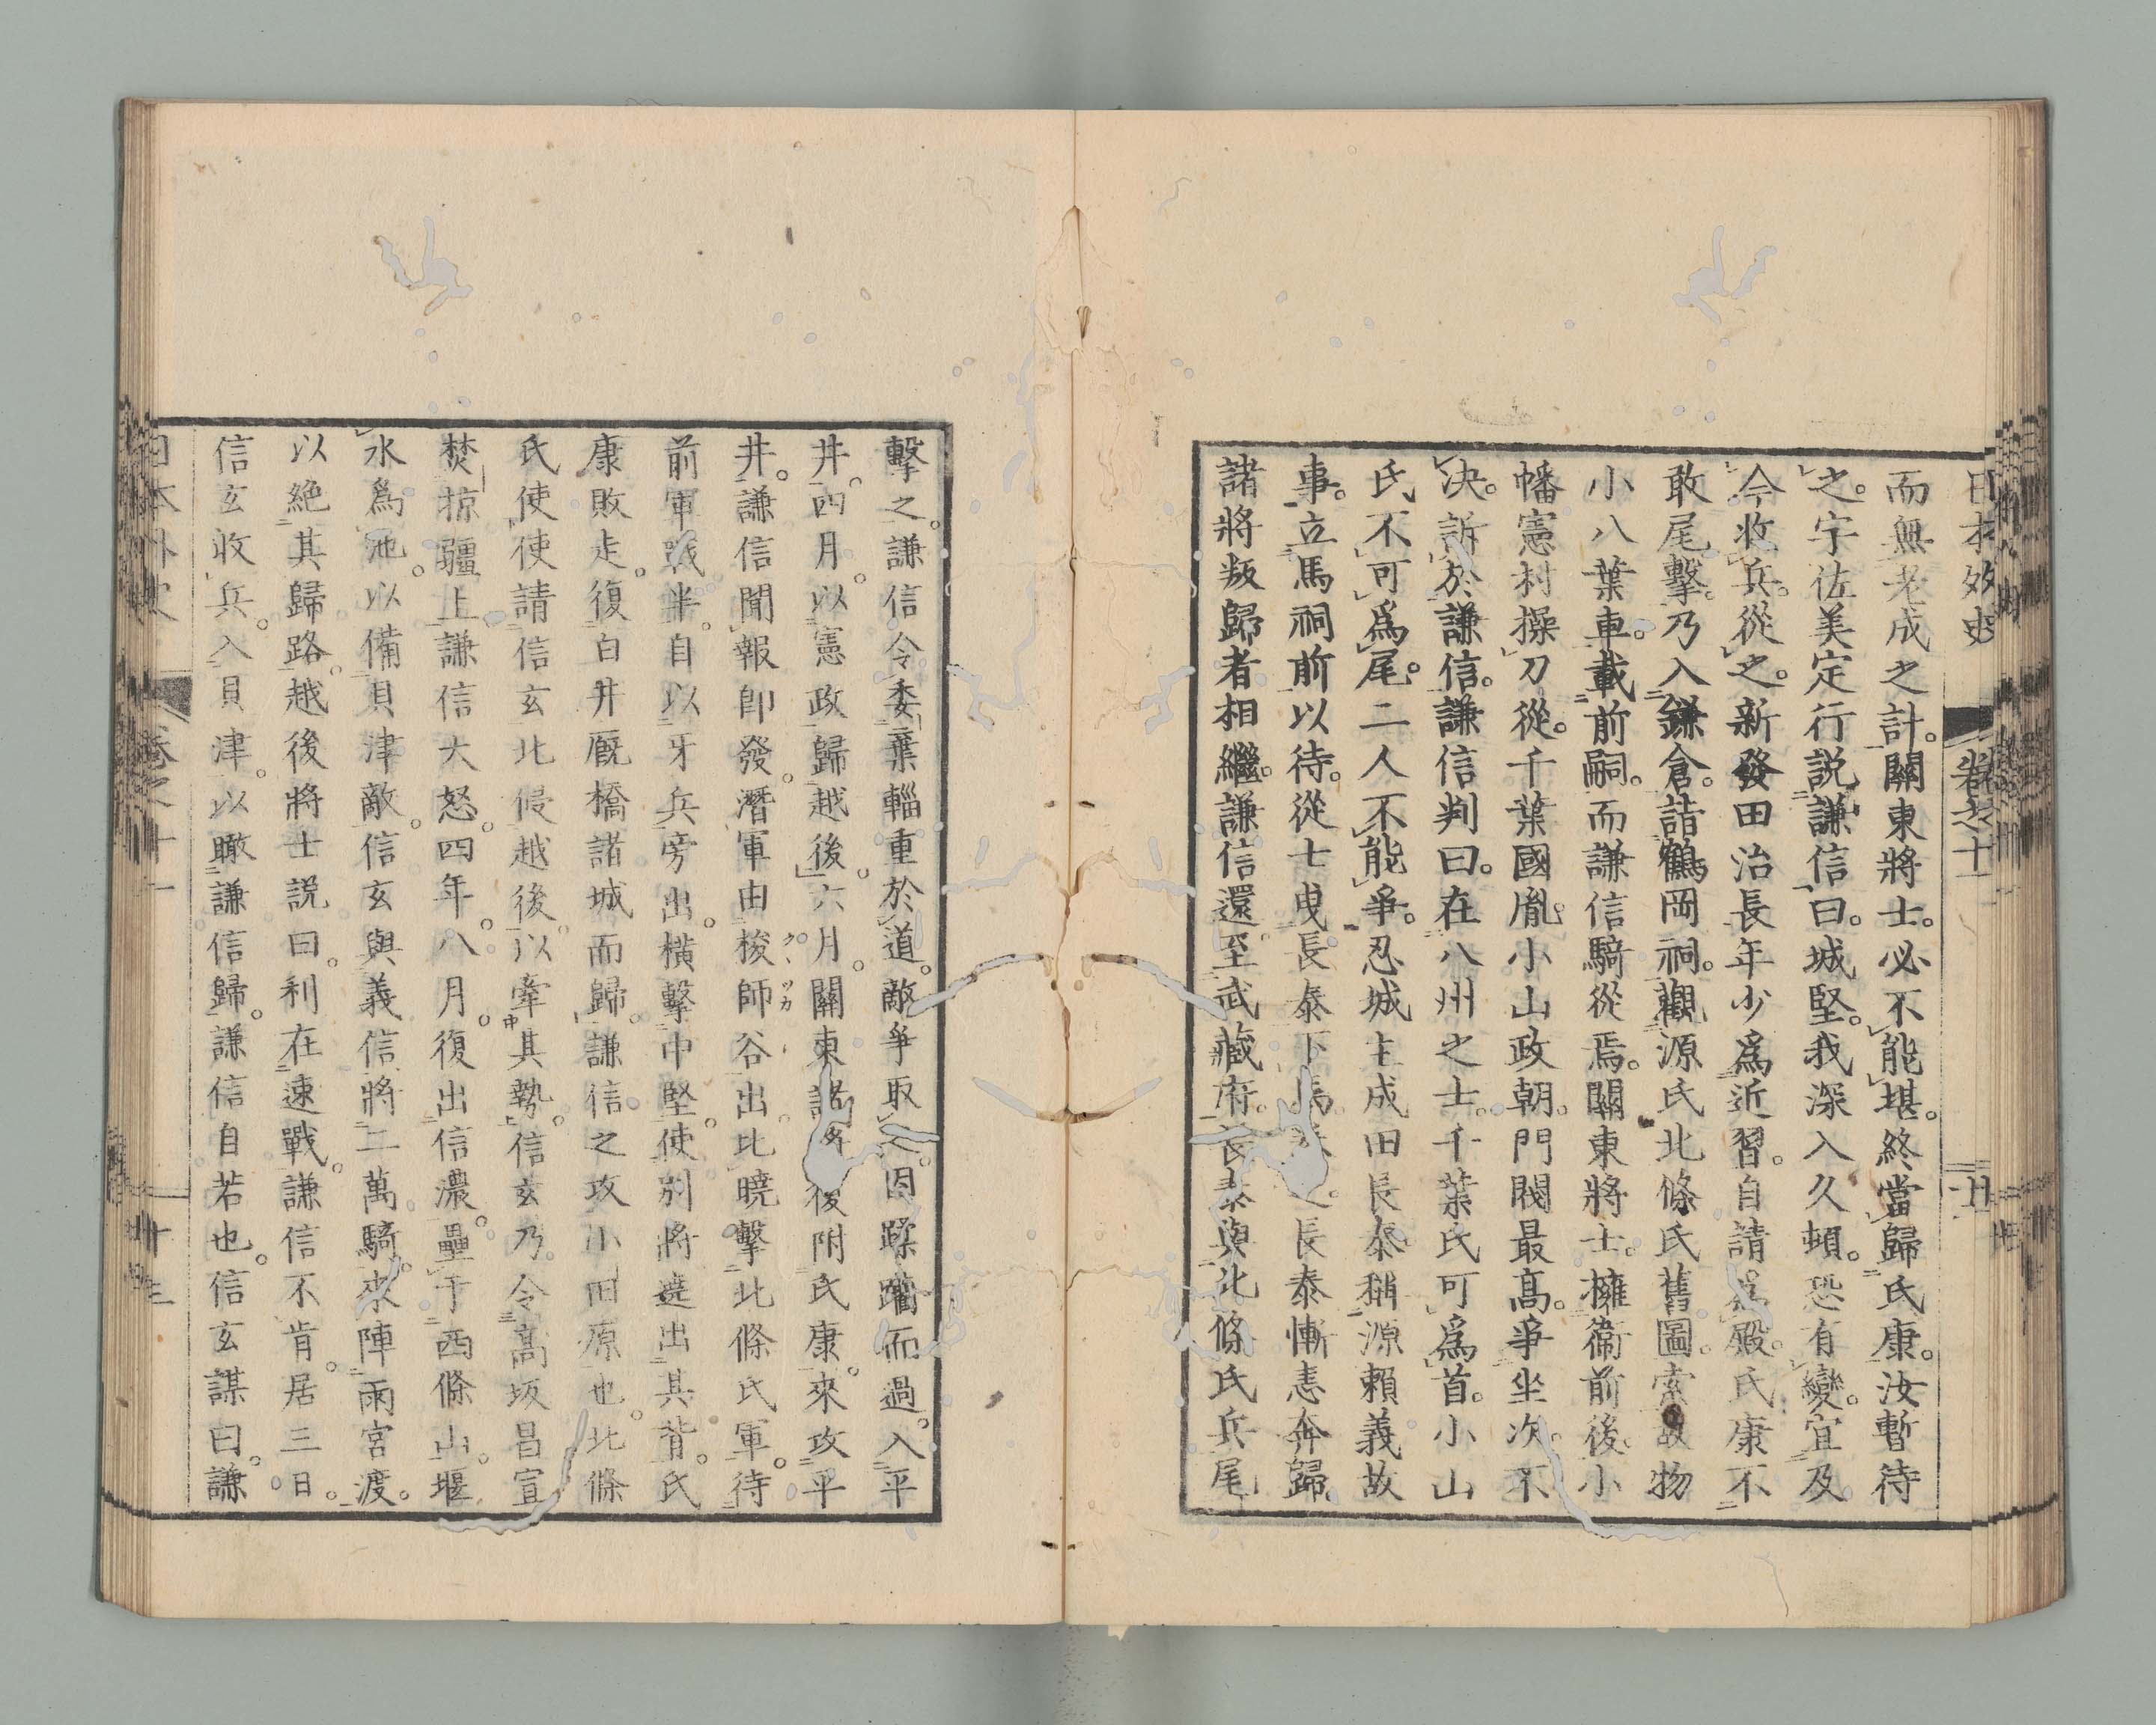 日本外史
卷之十一
而無老成之計。關東將士。必不能堪。終當歸氏康。汝暫待
之。宇佐美定行説謙信曰。城堅。我深入久頓。恐有變。宜及
今收兵。從之。新發田治長年少爲近習。自請爲殿。氏康不
敢尾擊。乃入鎌倉。詣鶴岡祠。觀源氏北條氏舊圖。索故物
小八葉車。載前嗣。而謙信騎從焉。關東將士。擁衞前後。小
幡憲村操刀從。千葉國胤。小山政朝。門閥最高。爭坐次。不
決。訴於謙信。謙信判曰。在八州之士。千葉氏可爲首。小山
氏不可爲尾。二人不能爭。忍城主成田長泰稱源頼義故
事。立馬祠前以待。從士曳長泰下馬。之。長泰慚恚奔歸。
諸將叛歸者相繼。謙信還至武藏府。長泰與北條氏兵尾
擊之。謙信令委棄輜重於道。敵爭取之。因蹂躪而過。入平
井。四月。以憲政歸越後。六月。關東諸將復附氏康。來攻平
井。謙信聞報卽發。潛軍由梭師谷出。比曉擊北條氏軍。待
前軍戰半。自以牙兵旁出。橫擊中堅。使別將遶出其背。氏
康敗走。復白井厩橋諸城而歸。謙信之攻小田原也。北條
氏使使請信玄北侵越後。以牽其勢。信玄乃令高坂昌宣
焚掠疆上。謙信大怒。四年。八月。復出信濃。壘于西條山。堰
水爲池。以備貝津敵。信玄與義信將二萬騎。來陣雨宮渡。
以絶其歸路。越後將士説曰。利在速戰。謙信不肯。居三日。
信玄收兵。入貝津。以瞰謙信歸。謙信自若也。信玄謀曰。謙
日本外史
卷之十一
十三